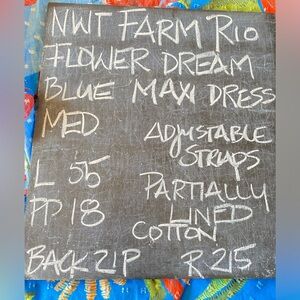 NWT FARM RIO
FLOWER DREAM
BLUE MAXI DRESS
MED
ADJUSTABLE
STRAPS
L 55
PARTIALLY
PP 18
LINED
COTTON
BACK ZIP R 215